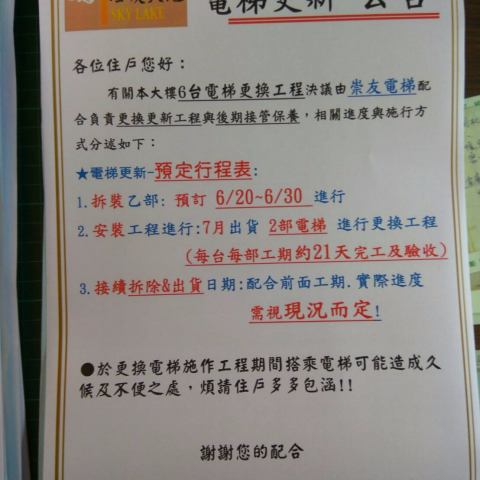 SKY LAKE
電梯更新 公告
各位住戶您好：
有關本大樓6台電梯更換工程決議由崇友電梯配
合負責更換更新工程與後期接管保養，相關進度與施行方
式分述如下：
★電梯更新-預定行程表:
1.拆裝乙部: 預訂 6/20~6/30 進行
2.安裝工程進行:7月出貨 2部電梯 進行更換工程
(每台每部工期約21天完工及驗收)
3.接續拆除&出貨日期:配合前面工期.實際進度
需視現況而定!
●於更換電梯施作工程期間搭乘電梯可能造成久
候及不便之處，煩請住戶多多包涵!!
謝謝您的配合